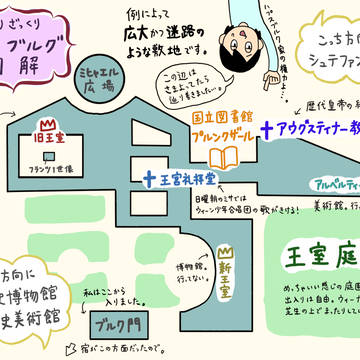 りざっくり
ブルグ
図解
例によって
広大かつ迷路の
ような敷地です。
ハプスブルク家の権力よ…
こっち方向
シュテファン
ミヒャエル
広場
この辺は
さまよってたら
辿り着きました。
国立図書館
プルンクザール
歴代皇帝の
アウグスティナー教
旧王宮
フランツ1世像
王宮礼拝堂
日曜朝のミサでは
ウィーン少年合唱団の歌がきける!
アルベルティ
美術館。行
方向に
史博物館
史美術館
私はここから
入りました。
ブルク門
宿がこの方面だったので。
博物館。
行ってない。
新王宮
王宮庭
めっちゃいい感じの庭園
出入りは自由。ウィーナ
芝生の上でまったりしてい